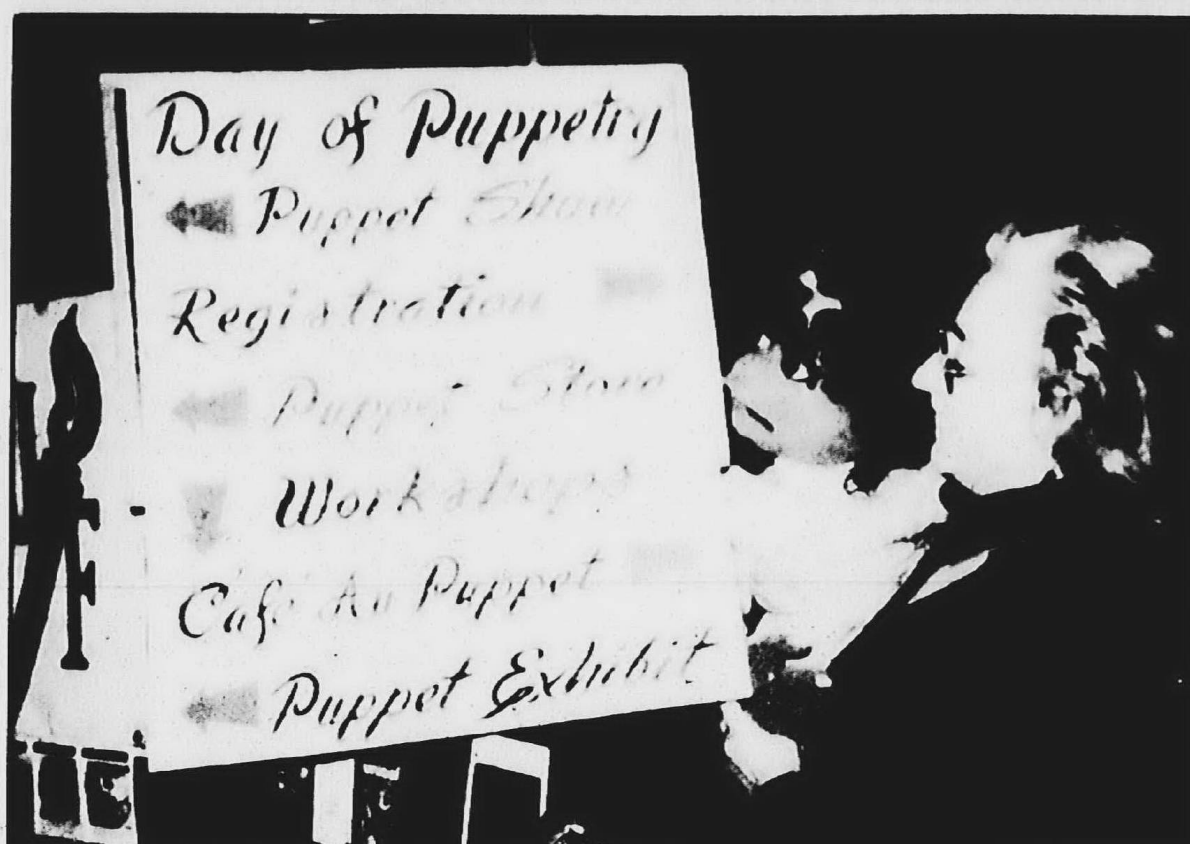 Day of Puppetry
Puppet Show
Registration
Puppet Store
Workshops
Café Au Puppet
Puppet Exhibit